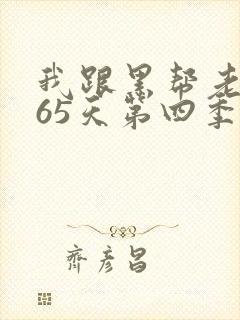 我跟黑帮老
65天第四季
齐彦昌